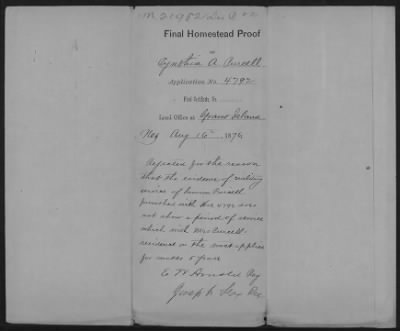 Final Homestead Proof
OF
Cynthia A Purcell
Application No. 4792
Final Certificate No.
Local Office at Grand Island
Neb Aug 16 1876
Rejected for the reason
that the evidence of military
service of Purcell
furnished with the
not show a period of service
which with Mrs Purcell
residence on the tract applied
for makes 5 years
Reg
Rec